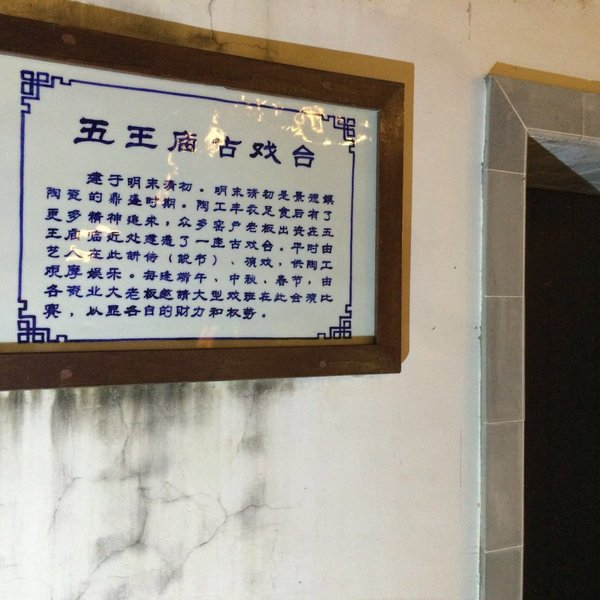 五王庙古戏台
建于明末清初。明末清初是景德镇
陶瓷的鼎盛时期。陶工丰衣足食后有了
更多精神追求，众多窑户老板出资在五
王庙临近处建造了一座古戏台。平时由
艺人在此讲传（说书）、演戏，供陶工
观摩娱乐。每逢端午、中秋、春节，由
各瓷业大老板邀请大型戏班在此会演比
赛，以显各自的财力和权势。